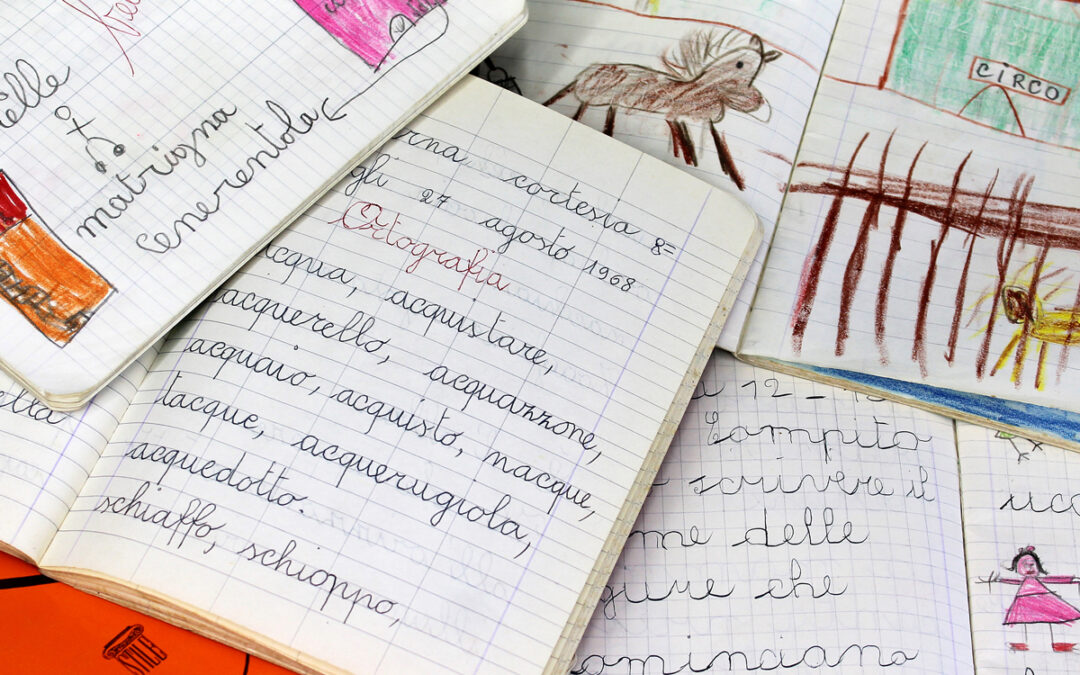 elle
matrigna
Cenerentola
erna cortesia
gli 27 agosto 1968 8=
Ortografia
acqua, acquistare,
acquerello, acquazzone,
acquaio, acquisto, nacque,
tacque, acquerugiola,
acquedotto.
schiaffo, schioppo,
ella
STILE
CIRCO
12 - 13
Compito
scrivere il
me delle
gure che
ominciano